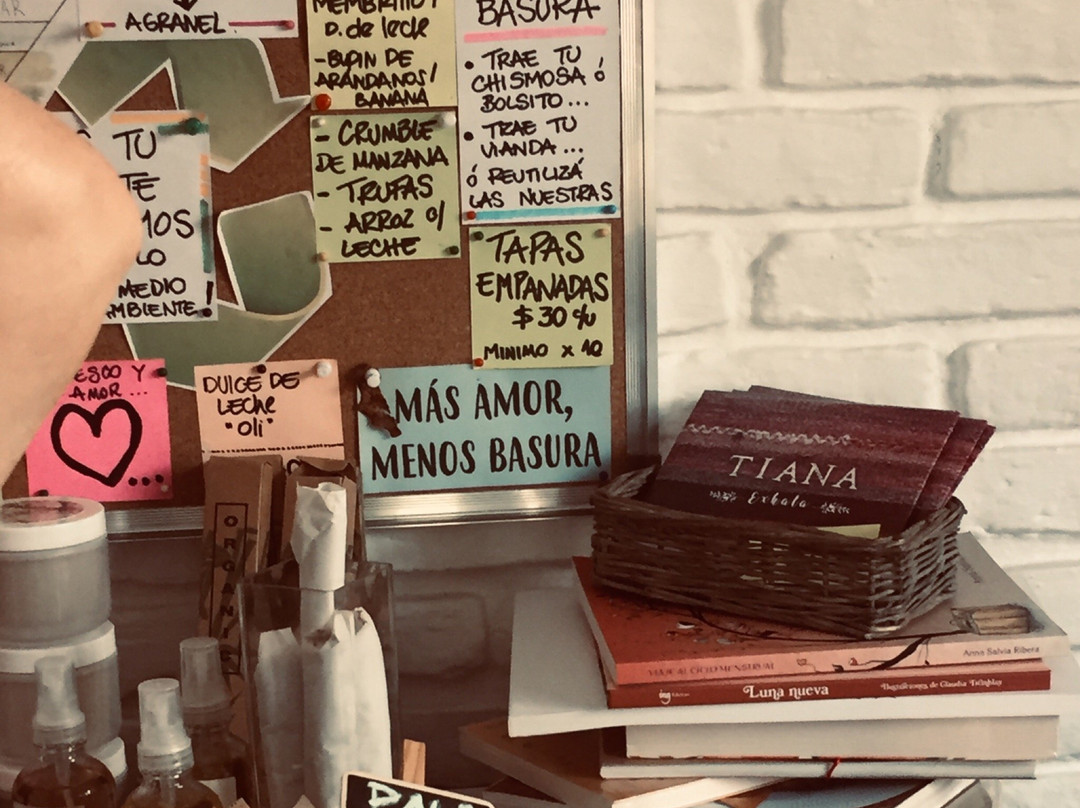 AGRANEL.
TU
MEDIO
AMBIENTE!
MEMBRILLO Y
D. de leche
-BUDIN DE
ARÁNDANOS/
BANANA
- CRUMBLE
DE MANZANA
- TRUFAS
- ARROZ c/
LECHE
BASURA
• TRAE TU
CHISMOSA ó
BOLSITO...
• TRAE TU
VIANDA...
ó REUTILIZÁ
LAS NUESTRAS
TAPAS
EMPANADAS
$30 c/u
MINIMO x 10
ESCO Y
AMOR...
...
DULCE DE
LECHE
"Oli"
MÁS AMOR,
MENOS BASURA
TIANA
Exhala
Anna Salvia Ribera
VIAJE AL CICLO MENSTRUAL
ing
Luna nueva
Ilustraciones de Claudia Tremblay